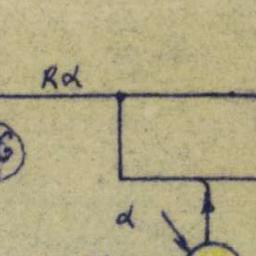 Rα
G
α